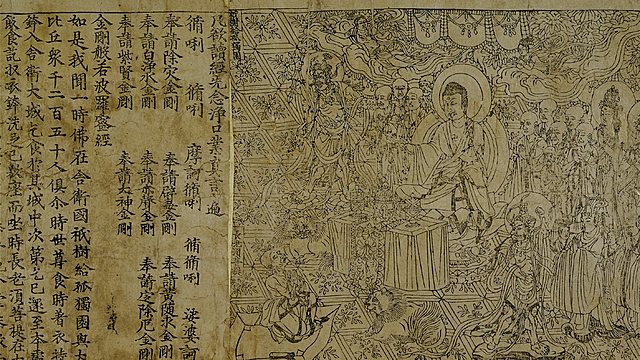 凡欲讀經先念淨口業真言一遍
脩唎 脩唎 摩訶脩唎 脩脩唎 娑婆訶
奉請除灾金剛 奉請辟毒金剛 奉請黃隨求金剛
奉請白淨水金剛 奉請赤聲金剛 奉請定除厄金剛
奉請紫賢金剛 奉請大神金剛
金剛般若波羅蜜經
如是我聞一時佛在舍衛國祇樹給孤獨園與大
比丘衆千二百五十人俱尒時世尊食時著衣持
鉢入舍衛大城乞食於其城中次第乞已還至本處
飯食訖收衣鉢洗足已敷座而坐時長老須菩提在